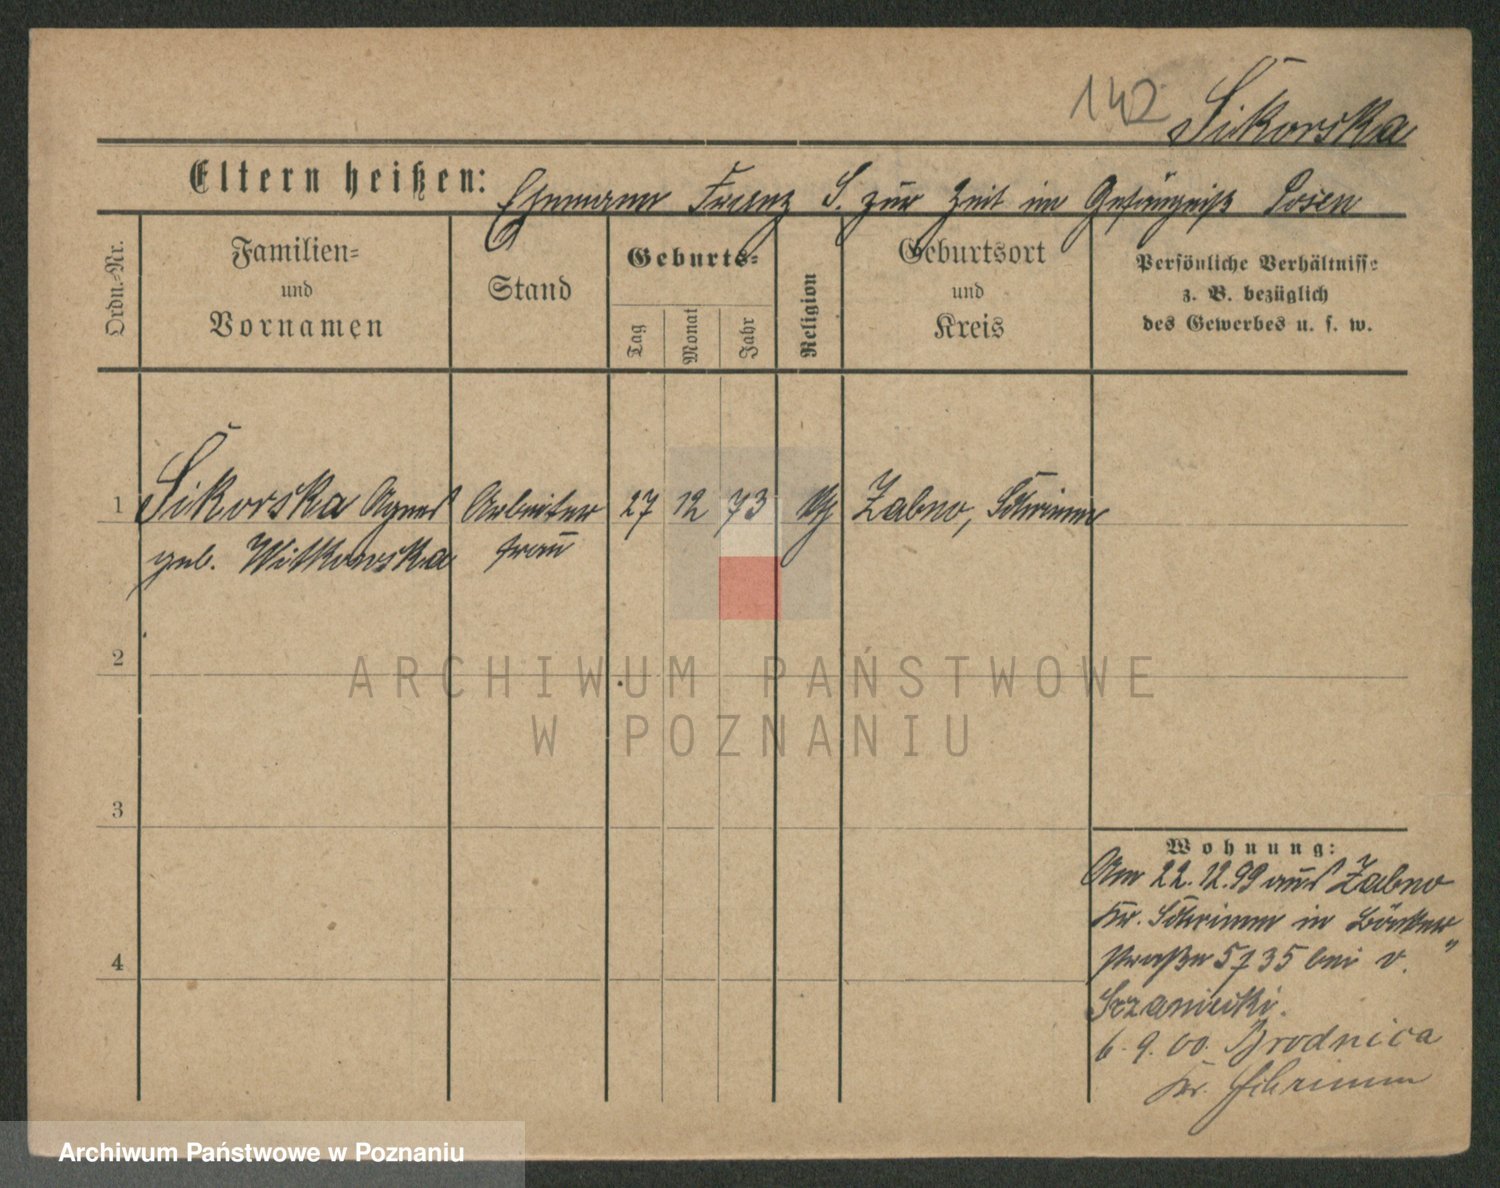 142 Sikorska
Eltern heißen: Ehemann Franz S. zur Zeit im Gefängniß Posen
Ordn.-Nr.
Familien-
und
Vornamen
Stand
Geburts-
Tag
Monat
Jahr
Religion
Geburtsort
und
Kreis
Persönliche Verhältnisse
z. B. bezüglich
des Gewerbes u. s. w.
1 Sikorska Agnes Arbeiter 27 12 73 Zabno, Schrimm
geb. Witkowska frau
2
3
4
Wohnung:
Am 22.12.99 aus Zabno
Kr. Schrimm in Bäcker
straße 5735 bei v.
Sczaniecki.
6.9.00. Brodnica
Kr. Schrimm
ARCHIWUM PAŃSTWOWE
W POZNANIU
Archiwum Państwowe w Poznaniu